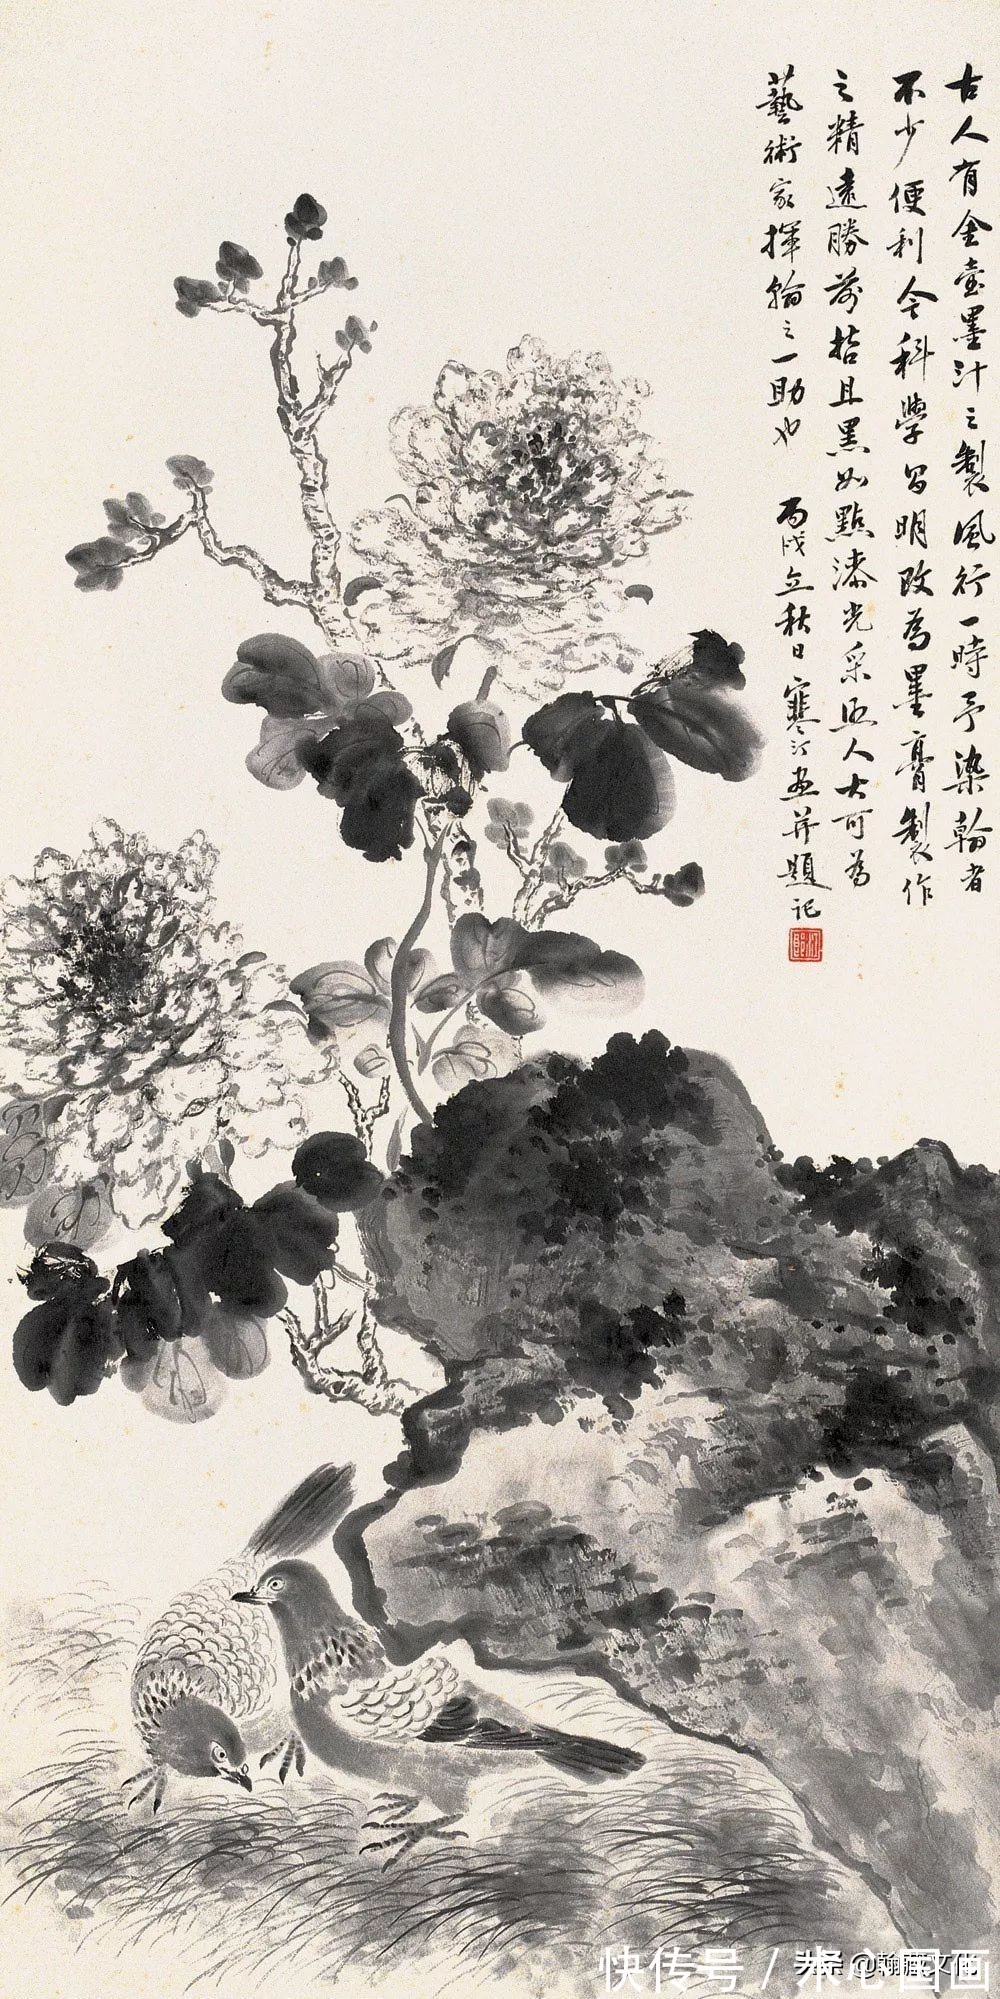 古人有金壺墨汁之製風行一時予染翰者
不少便利今科學昌明改為墨膏製作
之精遠勝前哲且黑如點漆光采照人大可為
藝術家揮翰之一助也 丙戌立秋日寒汀畫并題記
江郎
快传号 / 米心国画
头条 @翰藏文化